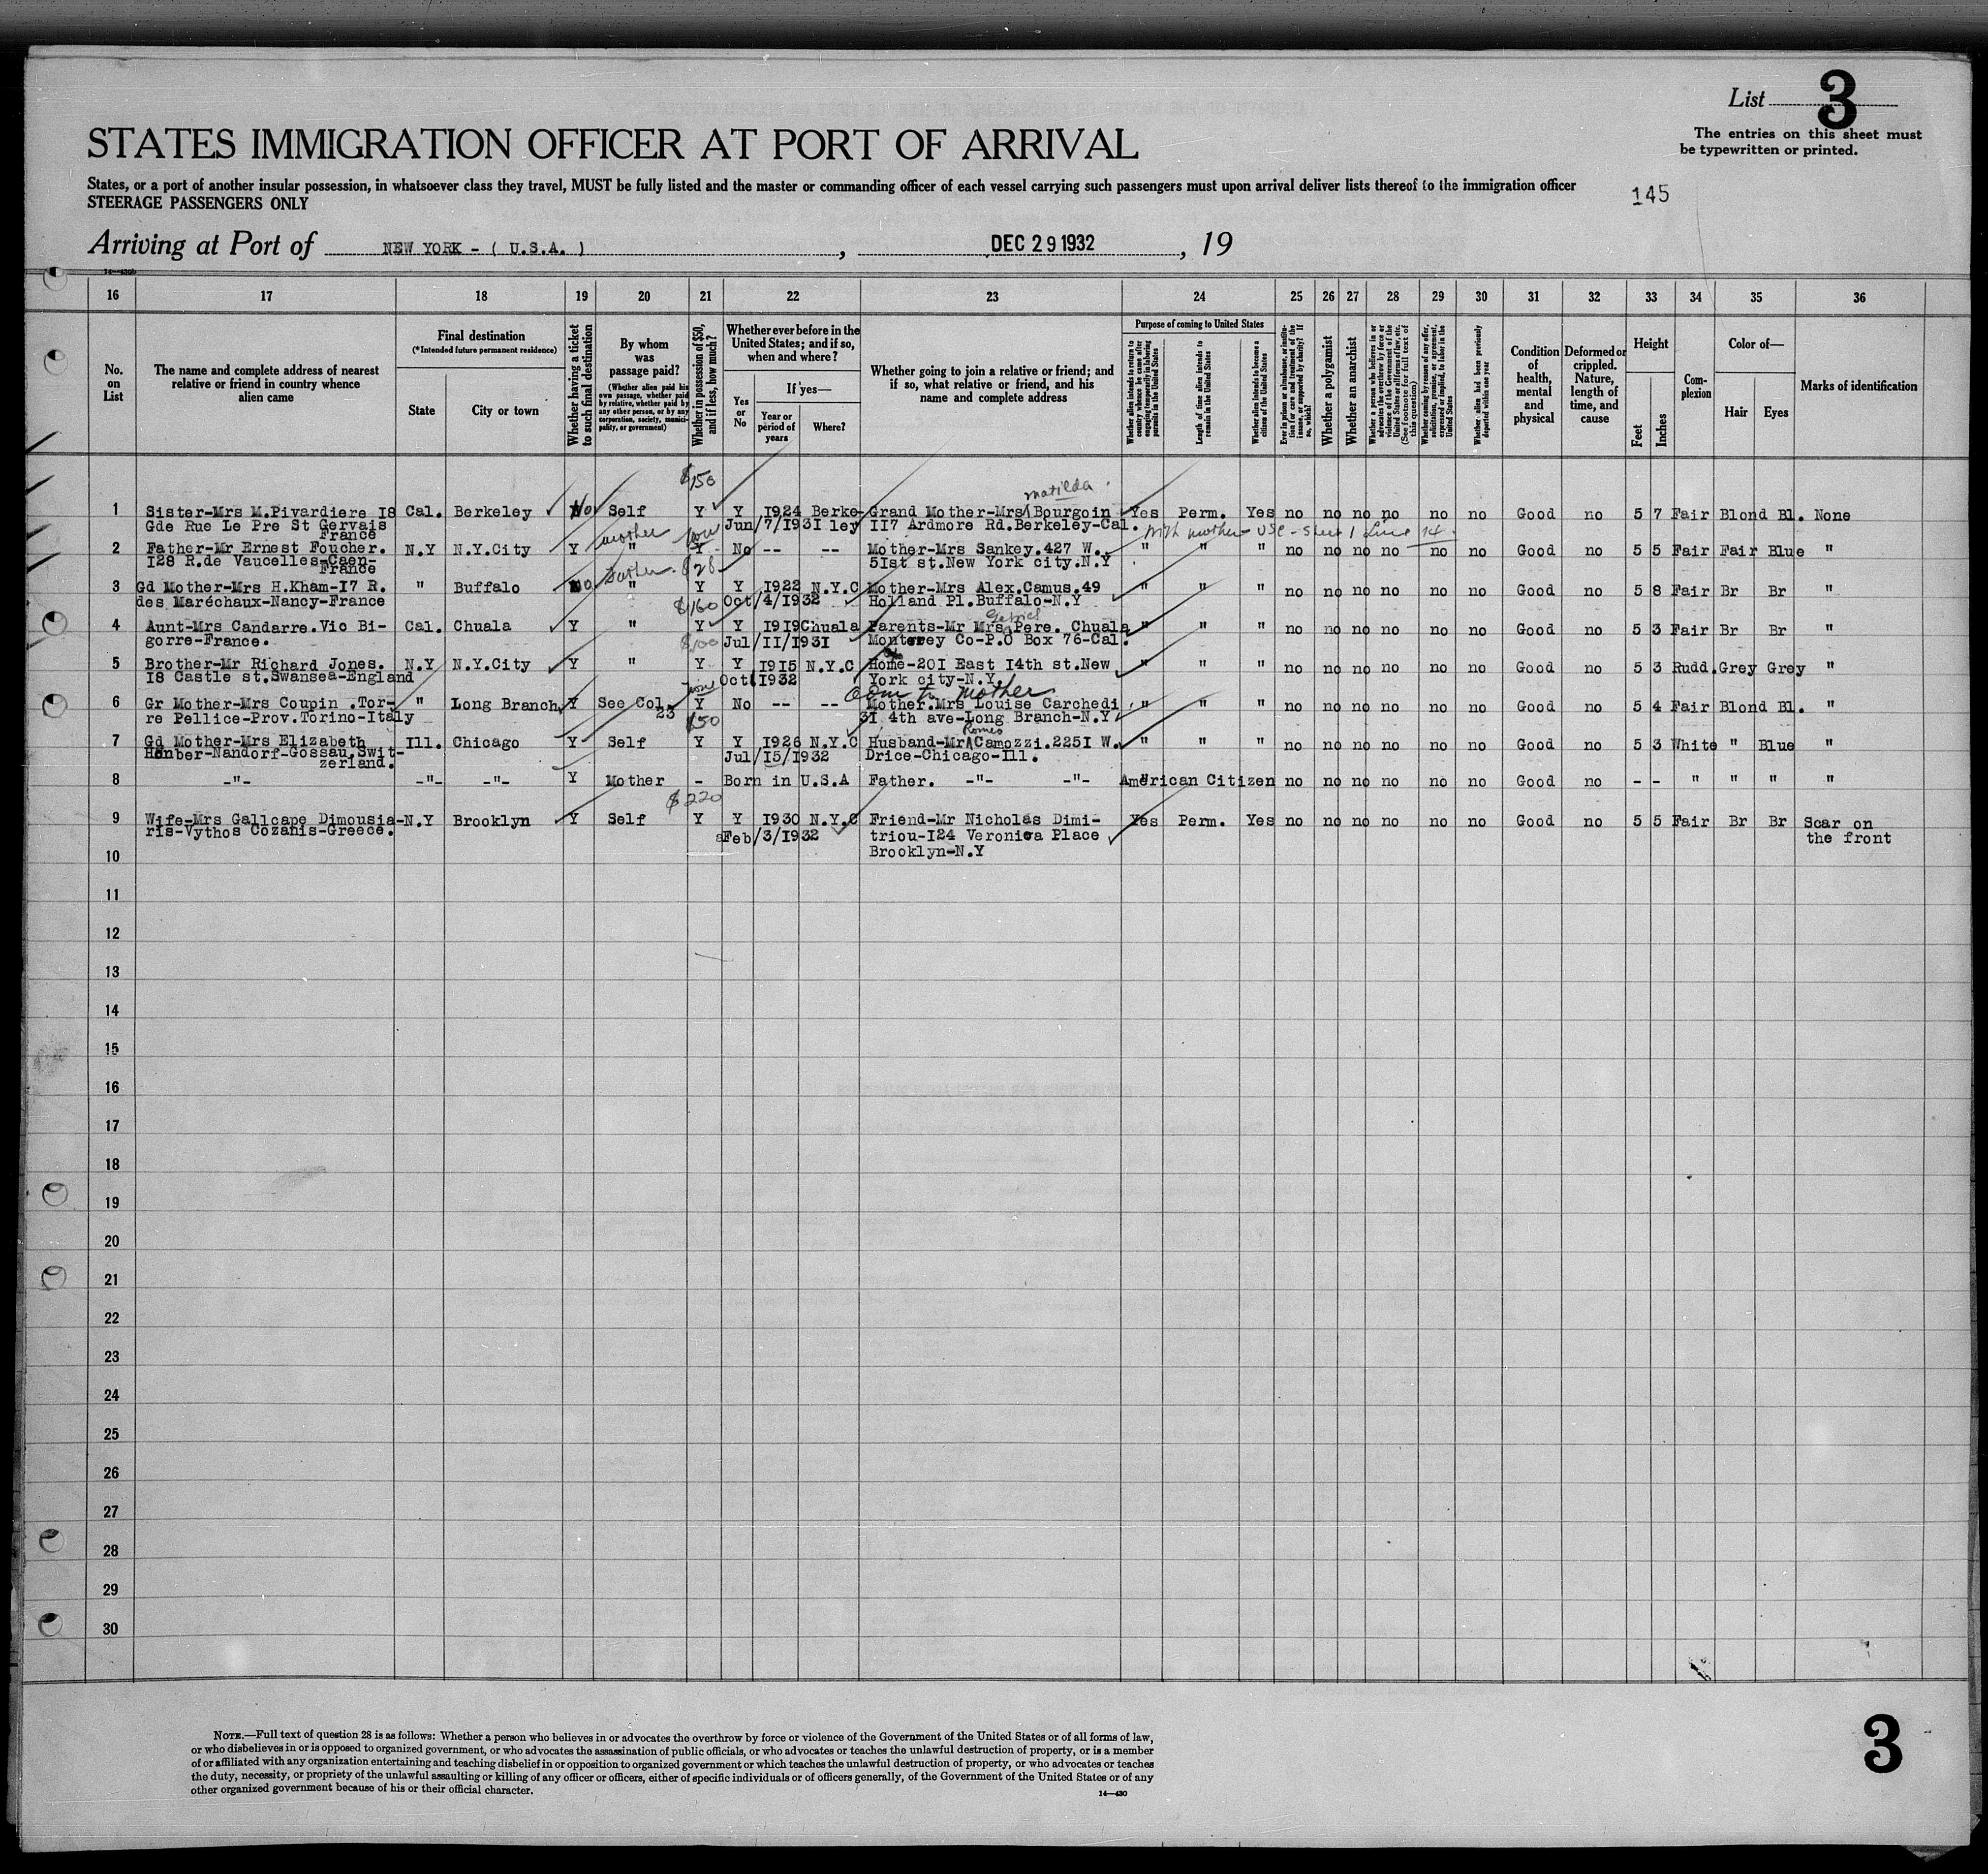 List 3
The entries on this sheet must
be typewritten or printed.
STATES IMMIGRATION OFFICER AT PORT OF ARRIVAL
States, or a port of another insular possession, in whatsoever class they travel, MUST be fully listed and the master or commanding officer of each vessel carrying such passengers must upon arrival deliver lists thereof to the immigration officer
STEERAGE PASSENGERS ONLY
145
Arriving at Port of NEW YORK - ( U.S.A. ) , DEC 29 1932 , 19
16 17 18 19 20 21 22 23 24 25 26 27 28 29 30 31 32 33 34 35 36
No. on List
The name and complete address of nearest relative or friend in country whence alien came
Final destination
(*Intended future permanent residence)
State
City or town
Whether having a ticket to such final destination
By whom was passage paid?
(Whether alien paid his own passage, whether paid by relative, whether paid by any other person, or by any corporation, society, municipality, or government)
Whether in possession of $50, and if less, how much?
Whether ever before in the United States; and if so, when and where?
Yes or No
If yes—
Year or period of years
Where?
Whether going to join a relative or friend; and if so, what relative or friend, and his name and complete address
Purpose of coming to United States
Whether alien intends to return to country whence he came after engaging temporarily in laboring pursuits in the United States
Length of time alien intends to remain in the United States
Whether alien intends to become a citizen of the United States
Ever in prison or almshouse, or institution for care and treatment of the insane, or supported by charity? If so, which?
Whether a polygamist
Whether an anarchist
Whether a person who believes in or advocates the overthrow by force or violence of the Government of the United States or all forms of law, etc. (See footnote for full text of this question)
Whether coming by reason of any offer, solicitation, promise, or agreement, expressed or implied, to labor in the United States
Whether alien had been previously deported within one year
Condition of health, mental and physical
Deformed or crippled. Nature, length of time, and cause
Height
Feet
Inches
Complexion
Color of—
Hair
Eyes
Marks of identification
$150
matilda
1 Sister-Mrs M.Pivardiere I8 Cal. Berkeley No Self Y Y I924 Berke- Grand Mother-Mrs Bourgoin Yes Perm. Yes no no no no no no Good no 5 7 Fair Blond Bl. None
Gde Rue Le Pre St Gervais Jun/7/I93I ley II7 Ardmore Rd.Berkeley-Cal.
France
mother with mother USC - sheet 1 Line 14
2 Father-Mr Ernest Foucher. N.Y N.Y.City Y " Y No -- -- Mother-Mrs Sankey.427 W. " " " no no no no no no Good no 5 5 Fair Fair Blue "
I28 R.de Vaucelles-Caen- 5Ist st.New York city.N.Y
France
$28
3 Gd Mother-Mrs H.Kham-I7 R. " Buffalo No " Y Y I922 N.Y.C Mother-Mrs Alex.Camus.49 " " " no no no no no no Good no 5 8 Fair Br Br "
des Maréchaux-Nancy-France Oct/4/I932 Holland Pl.Buffalo-N.Y
$160
4 Aunt-Mrs Candarre.Vic Bi- Cal. Chuala Y " Y Y I9I9 Chuala Parents-Mr Mrs Pere. Chuala " " " no no no no no no Good no 5 3 Fair Br Br "
gorre-France. Jul/II/I93I Monterey Co-P.O Box 76-Cal.
$100
5 Brother-Mr Richard Jones. N.Y N.Y.City Y " Y Y I9I5 N.Y.C Home-20I East I4th st.New " " " no no no no no no Good no 5 3 Rudd. Grey Grey "
I8 Castle st.Swansea-England Oct I932 York city-N.Y.
none
com to mother
6 Gr Mother-Mrs Coupin .Tor- " Long Branch Y See Col. Y No -- -- Mother.Mrs Louise Carchedi " " " no no no no no no Good no 5 4 Fair Blond Bl. "
re Pellice-Prov.Torino-Italy 23 3I 4th ave-Long Branch-N.Y
$50
Romeo
7 Gd Mother-Mrs Elizabeth Ill. Chicago Y Self Y Y I926 N.Y.C Husband-Mr Camozzi.225I W. " " " no no no no no no Good no 5 3 White " Blue "
Honber-Nandorf-Gossau.Swit- Jul/I5/I932 Drice-Chicago-Ill.
zerland.
8 -"- -"- -"- Y Mother - Born in U.S.A Father. -"- -"- American Citizen no no no no no no Good no - - " " " "
$220
9 Wife-Mrs Gallcape Dimousia- N.Y Brooklyn Y Self Y Y I930 N.Y.C Friend-Mr Nicholas Dimi- Yes Perm. Yes no no no no no no Good no 5 5 Fair Br Br Scar on
ris-Vythos Cozanis-Greece. Feb/3/I932 triou-I24 Veronica Place the front
10 Brooklyn-N.Y
11
12
13
14
15
16
17
18
19
20
21
22
23
24
25
26
27
28
29
30
NOTE.—Full text of question 28 is as follows: Whether a person who believes in or advocates the overthrow by force or violence of the Government of the United States or of all forms of law,
or who disbelieves in or is opposed to organized government, or who advocates the assassination of public officials, or who advocates or teaches the unlawful destruction of property, or is a member
of or affiliated with any organization entertaining and teaching disbelief in or opposition to organized government or which teaches the unlawful destruction of property, or who advocates or teaches
the duty, necessity, or propriety of the unlawful assaulting or killing of any officer or officers, either of specific individuals or of officers generally, of the Government of the United States or of any
other organized government because of his or their official character.
14—430
3